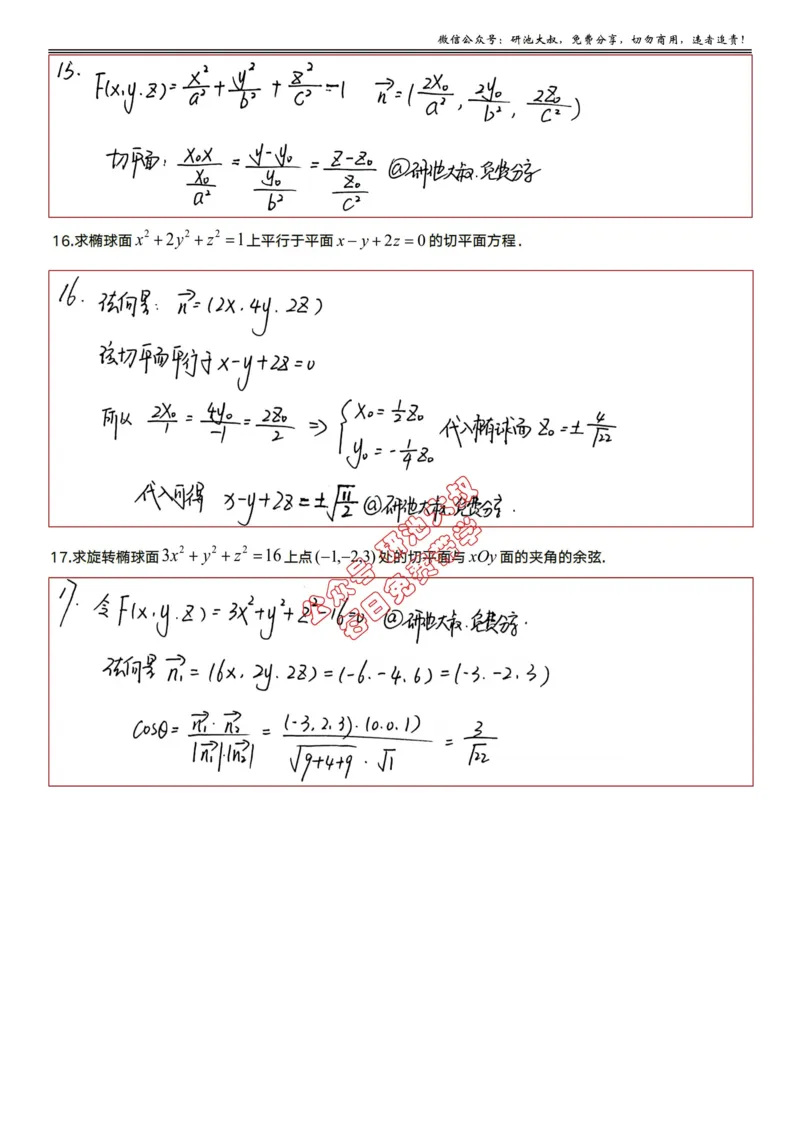 微信公众号：研池大叔，免费分享，切勿商用，违者追责！
15. F(x,y.z)= x²/a² + y²/b² + z²/c² =1 n⃗=(2x₀/a², 2y₀/b², 2z₀/c²)
切平面: x₀x/(x₀/a²) = y-y₀/(y₀/b²) = z-z₀/(z₀/c²) @研池大叔.免费分享
16.求椭球面 x²+2y²+z²=1上平行于平面 x-y+2z=0的切平面方程.
16. 法向量: n⃗=(2x.4y.2z)
该切平面平行于x-y+2z=0
所以 2x₀/1 = 4y₀/-1 = 2z₀/2 => { x₀=½z₀ y₀=-¼z₀ 代入椭球面 z₀=±4/√22
代入可得 x-y+2z=±√(11/2) @研池大叔.免费分享.
17.求旋转椭球面3x²+y²+z²=16上点(-1,-2,3)处的切平面与xOy面的夹角的余弦.
17. 令F(x.y.z)=3x²+y²+z²-16=0 @研池大叔.免费分享.
法向量 n⃗₁=(6x,2y.2z)=(-6.-4.6)=(-3.-2.3)
cosθ= n⃗₁·n⃗₂/|n⃗₁|·|n⃗₂| = (-3,2,3)·(0.0.1)/√(9+4+9)·√1 = 3/√22
公众号：研池大叔
每日免费带学